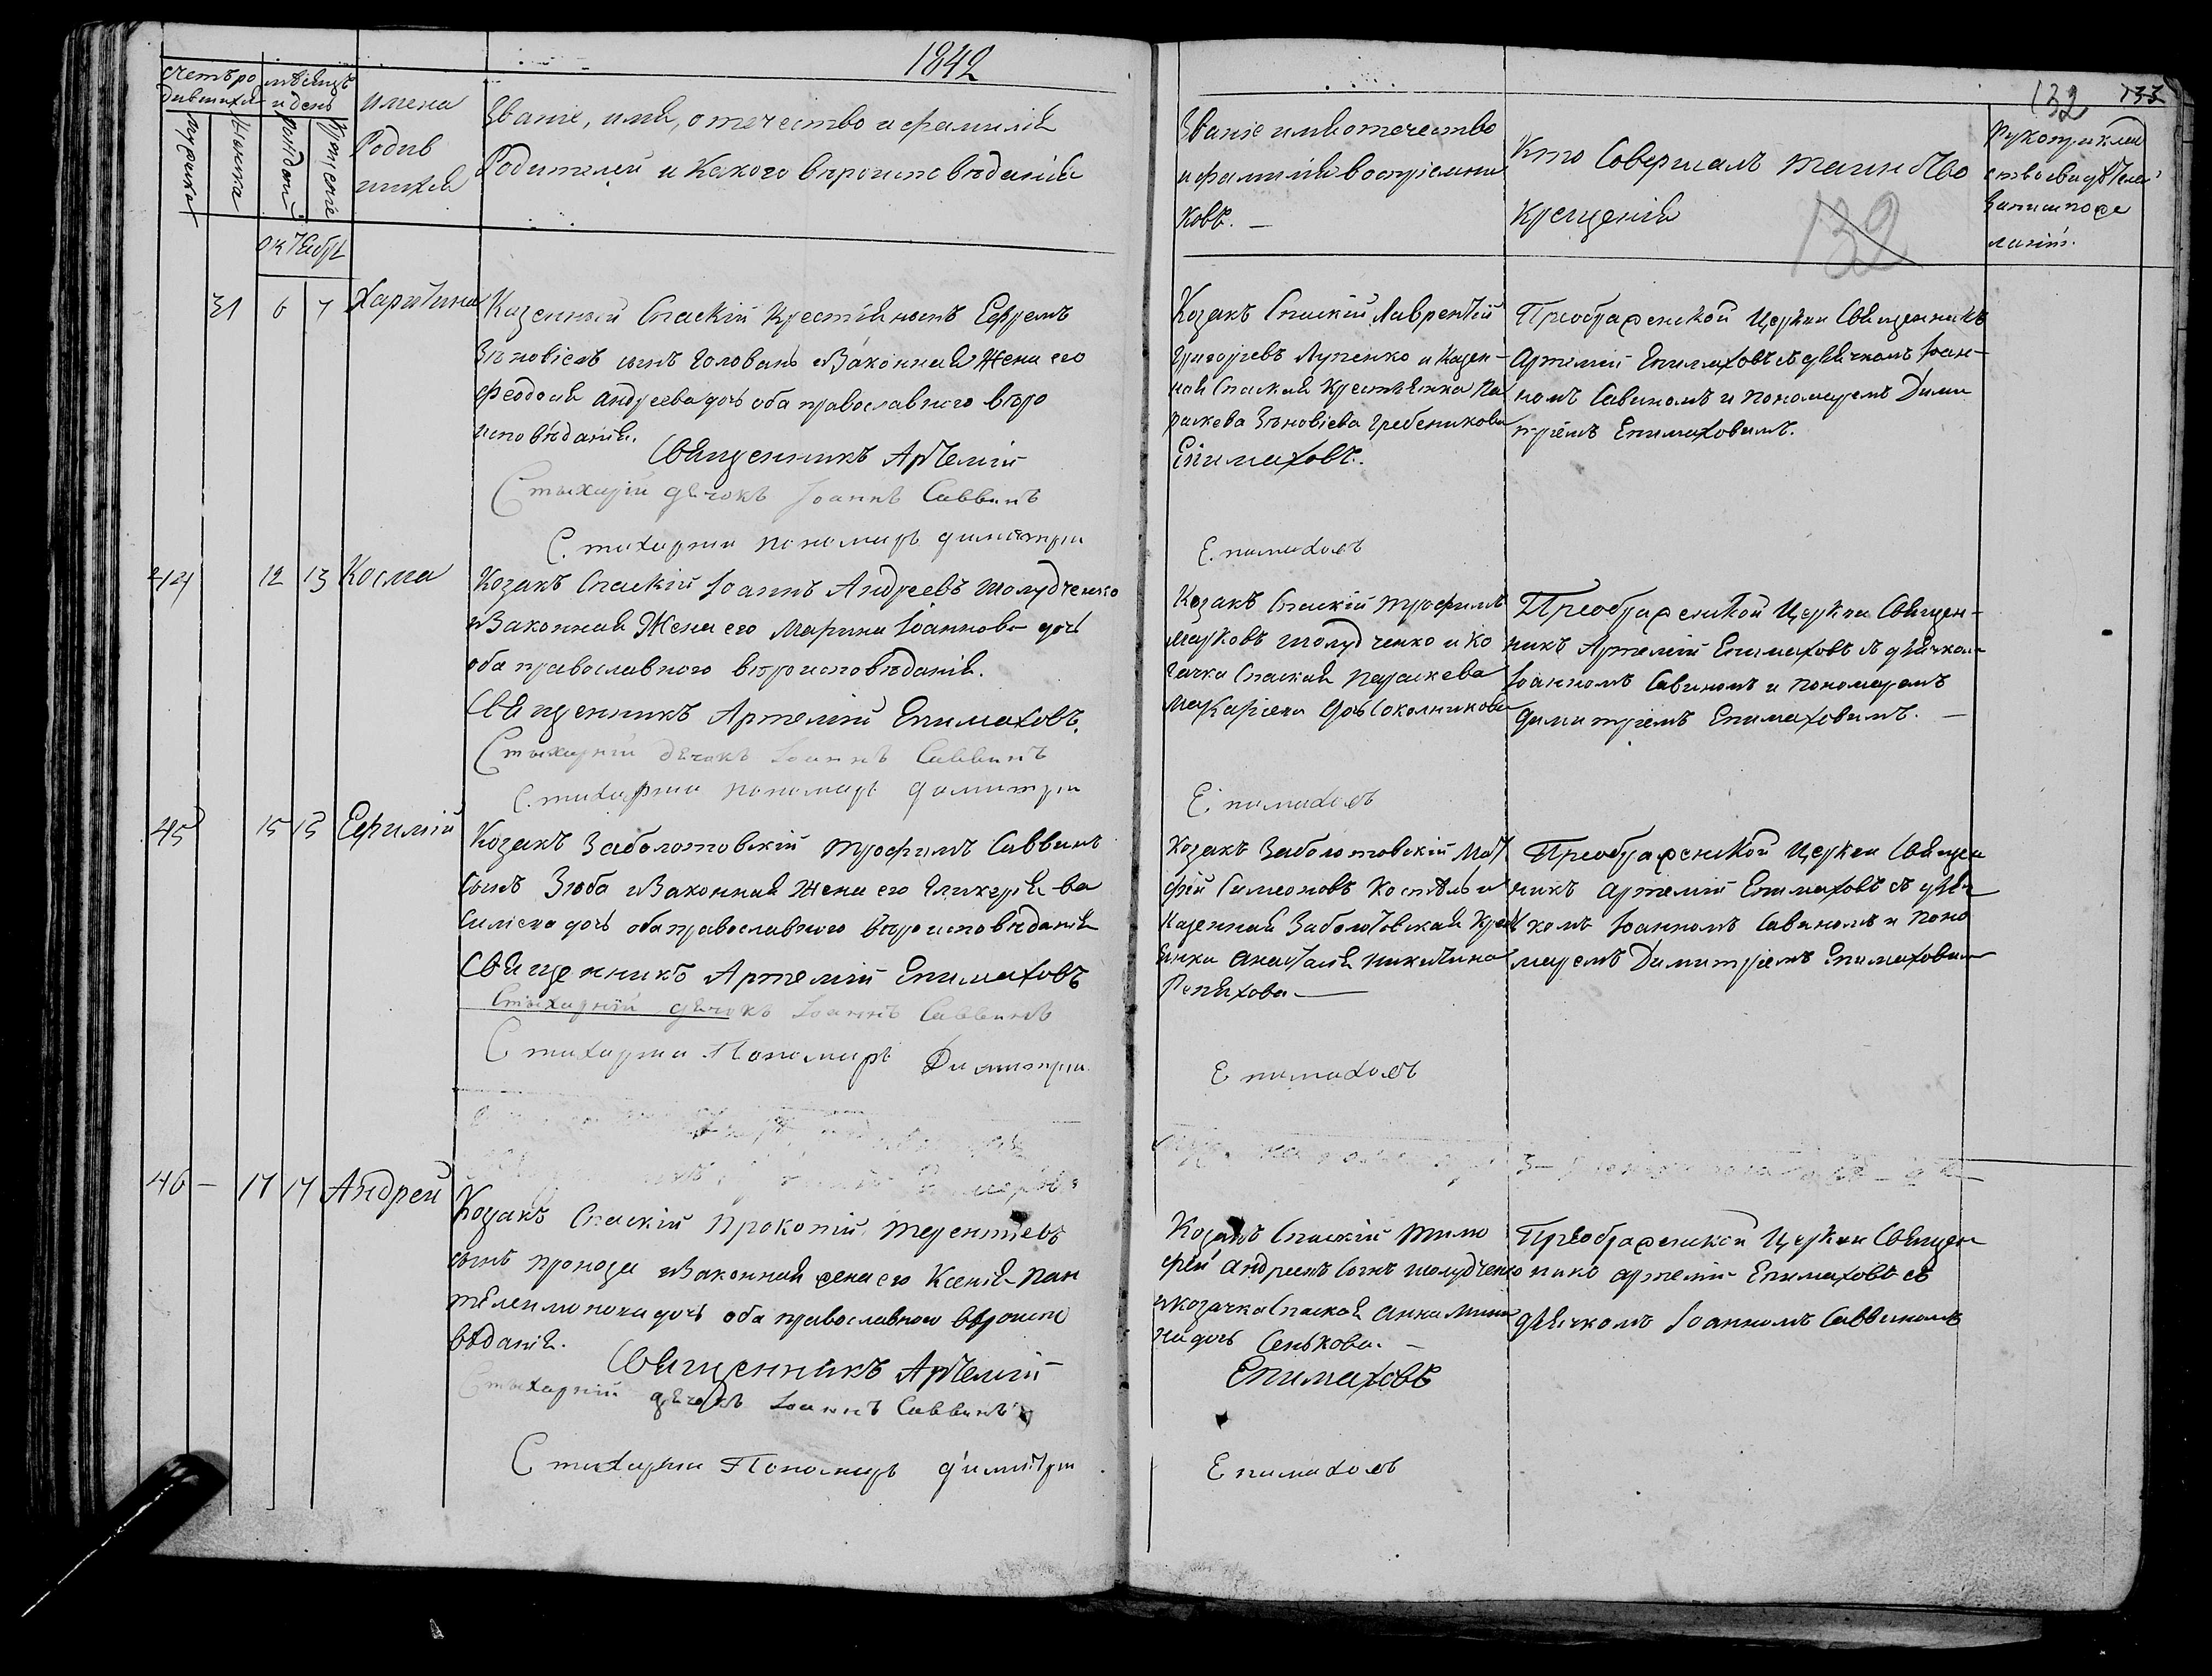 1842
132 133
счетъ ро дившихся
мѣсяцъ и день
мужеска
женска
рожденія
крещеніе
имена Родив шихся
Званіе, имя, отечество и фамилія
Родителей и Какого вѣроисповѣданія
Званіе имя отечество
и фамилія воспріемни
ковъ. —
Кто Совершалъ таинство
крещенія
132
Рукоприклад
ство свидѣтелей
записи по же
ланію.
октября
31 6 7 Харитина
Казенный Спаскій Крестьянинъ Ефремъ
Зѣновіевъ сынъ Головань и Законная Жена его
Феодосія Андреева дочь оба православного вѣро
исповѣданія.
Священникъ Артемій
Стыхарій дячокъ Іоаннъ Саввинъ
Стихарни пономаръ димитри
Козакъ Спаскій Лаврентій
Григорьевъ Лупенко и Казен-
ная Спаская Крестьянка Па
раскева Зѣновіева Гребеникова
Епимаховъ.
Епимаховъ
Преображенской Церкви Священникъ
Артемій Епимаховъ съ дячкомъ Іоан-
номъ Савиномъ и пономаремъ Дими
тріемъ Епимаховимъ.
44 12 13 Косма
Козакъ Спаскій Іоаннъ Андреевъ Шолудченко
и Законная Жена его Марина Іоаннова дочь
оба православного вѣроисповѣданія.
Священникъ Артемій Епимаховъ.
Стыхарній дячокъ Іоаннъ Саввинъ
Стихарни пономаръ димитри
Козакъ Спаскій Трофимъ
Марковъ Шолудченко и Ко
зачка Спаская Параскева
Макаріева дочь Соколникова
Епимаховъ
Преображенской Церкви Священ-
никъ Артемій Епимаховъ съ дячком
Іоанномъ Савиномъ и пономаремъ
Димитріемъ Епимаховимъ. —
45 15 15 Ефимій
Козакъ Заболотовскій Трофимъ Саввинъ
сынъ Зюба и Законная Жена его Гликерія Ва
силіева дочь оба православного вѣроисповѣданія
Священникъ Артемій Епимаховъ
Стыхарній дячокъ Іоаннъ Саввинъ
Стихарни Пономаръ Димитри
Козакъ Заболотовскій Мат
фій Симеоновъ и
Казенная Заболотовская Крест
янка Анастасія Никитина
Репяхова —
Епимаховъ
Преображенской Церкви Священ
никъ Артемій Епимаховъ съ дя
чкомъ Іоанномъ Савиномъ и поно
маремъ Димитріемъ Епимаховим
46 — 17 17 Андрей
Козакъ Спаскій Прокопій Терентіевъ
сынъ и Законная жена его Ксенія Пан
телеимонова дочь оба православного вѣроиспо
вѣданія.
Священникъ Артемій
Стыхарній дячокъ Іоаннъ Саввинъ
Стихарни Пономаръ димитри
Козакъ Спаскій Тимо
фей Андреевъ сынъ Шолудченко
и козачка Спаская Анна Мини
на дочь Сенькова. —
Епимаховъ
Епимаховъ
Преображенской Церкви Священ
никъ Артемій Епимаховъ съ
дячкомъ Іоанномъ Саввиномъ